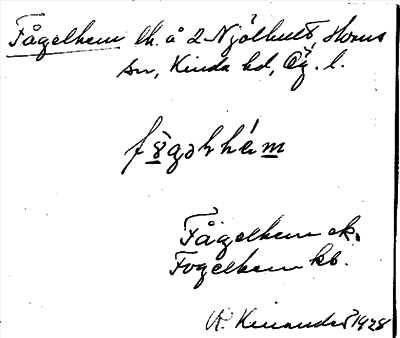 Fågelhem lh. å 2 Njölhult, Horns
sn, Kinda hd, Ög. l.
fō̲gəlhém̲
Fågelhem ek.
Fogelhem kb.
A. Kinander 1928